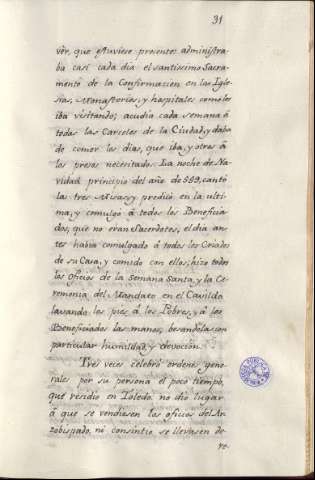 31
vor, que estuviese presente: administra-
ba casi cada dia el santissimo Sacra-
mento de la Confirmacion en las Igle-
sias, Monasterios, y hospitales como los
iba visitando; acudia cada semana à
todas las Carceles de la Ciudad, y daba
de comer los dias, que iba, y otros à
los presos necesitados. La noche de Na-
vidad principio del año de 589, cantò
las tres Misas, y predicò en la ulti-
ma, y comulgò à todos los Beneficia-
dos, que no eran Sacerdotes, el dia an-
tes habia comulgado à todos los Criados
de su Casa, y comido con ellos, hizo todos
los oficios de la Semana Santa, y la Ce-
remonia del Mandato en el Cavildo
lavando los pies à los Pobres, y à los
Beneficiados las manos, besandolas con
particular humildad, y devocion.
Tres veces celebrò ordenes gene-
rales por su persona el poco tiempo,
que residio en Toledo. no dio lugar
à que se vendiesen los oficios del Ar-
zobispado, ni consintio se llevasen de-
re-